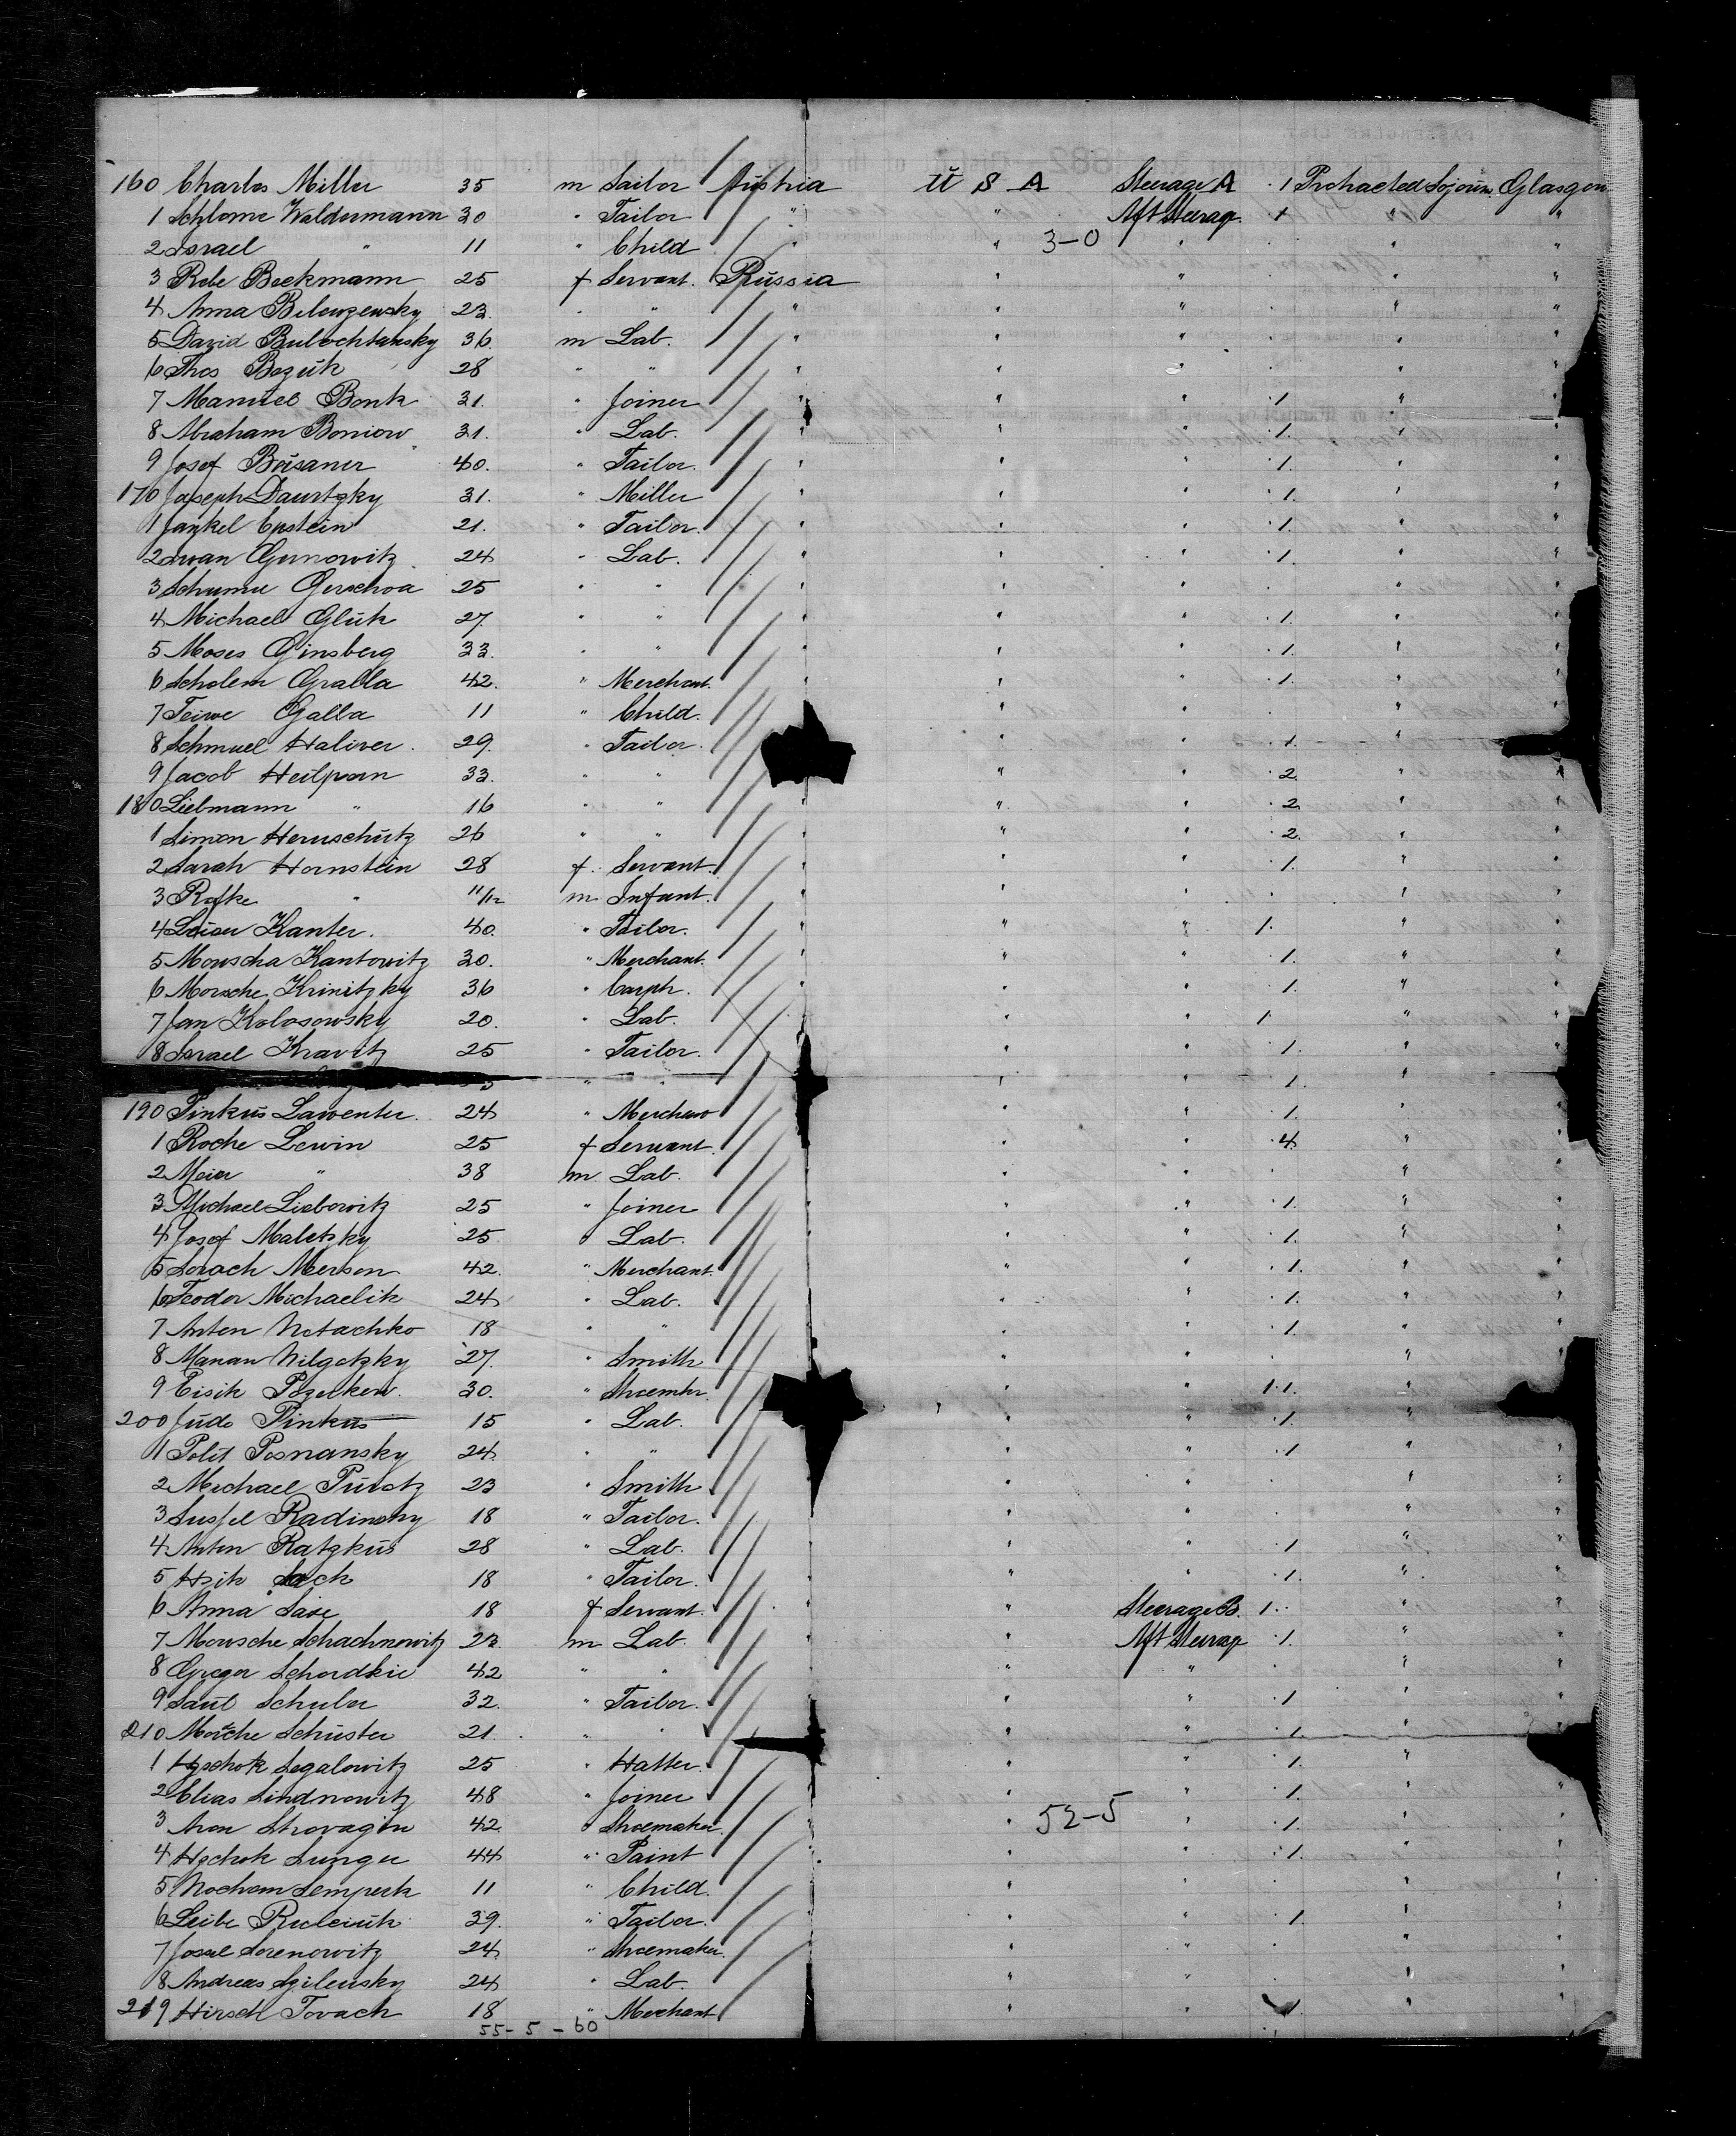 160 Charles Miller 35 m Sailor Austria U S A Steerage A 1 Protracted Sojourn Glasgow
1 Schlome Waldermann 30 " Tailor " " Aft Steerage 1 " "
2 Israel " 11 " Child " " 3-0 " " "
3 Rebe Beckmann 25 f Servant. Russia " " " "
4 Anna 23. " " " " " " "
5 David 36 m Lab. " " " " "
6 Thos Bozuk 28 " " " " " " "
7 Manuel Bonk 31. " Joiner " " " 1. " "
8 Abraham Boniow 31. " Lab. " " " 1. " "
9 Josef 40. " Tailor. " " " 1. " "
170 Joseph 31. " Miller " " " 1. " "
1 Jankel Epstein 21. " Tailor. " " " 1. " "
2 Iwan 24 " Lab. " " " 1. " "
3 Gerschoa 25 " " " " " " "
4 Michael Gluk 27. " " " " " 1. " "
5 Moses Ginsberg 33. " " " " " 1. " "
6 Scholem Gralla 42. " Merchant. " " " 1. " "
7 Teiwe Galla 11 " Child. " " " "
8 Schmuel Haliver. 29. " Tailor. " " 1. "
9 Jacob Heilporn 33. " " " " 2. " "
180 Liebmann " 16 " " " " " 2. " "
1 Simon Hernschutz 26 " " " " " 2. " "
2 Sarah Hornstein 28 f. Servant. " " " 1. " "
3 Rofke " 11/12 m Infant. " " " " "
4 Leiser Kanter. 40. " Tailor. " " " 1. " "
5 Mouscha Kantowitz 30. " Merchant. " " " 1. " "
6 Morsche Krinitzky 36 " Carptr. " " " 1. " "
7 Jan Kolosowsky 20. " Lab. " " " 1. " "
8 Israel Kravitz 25 " Tailor. " " " 1. " "
" " " " 1. " "
190 Pinkus Lawenter. 24 " Merchant " " 1. " "
1 Roche Lewin 25 f Servant. " " " 4. " "
2 Meier " 38 m Lab. " " " " "
3 Michael Liebowitz 25 " Joiner " " " 1. " "
4 Josef Maletzky 25. " Lab. " " " 1. " "
5 Sorach Meerson 42. " Merchant. " " " 1. " "
6 Feodor Michaelik 24 " Lab. " " " 1. " "
7 Anton Notachko 18 " " " " " 1. " "
8 Manan Nilgotzky 27. " Smith " " " "
9 Eisik 30. " Shoemkr. " " 1.1. "
200 Jude Pinkus 15 " Lab. " " 1. " "
1 Polit Posnansky 24. " " " " 1 " "
2 Michael Purotz 23 " Smith " " " "
3 Sussel Radinsky 18 " Tailor. " " " "
4 Anton Ratzkus 28 " Lab. " " 1 " "
5 Hsik Sack 18 " Tailor. " " 1. " "
6 Anna Saxe 18 f Servant. " Steerage B. 1. " "
7 Mowsche Schachnowitz 23. m Lab. " Aft Steerage 1. " "
8 Gregor Schordkie 42 " " " " " "
9 Saul Schuler 32. " Tailor. " " 1 " "
210 Morche Schuster 21. " " " " 1. "
1 Segalowitz 25 " Hatter. " " 1. " "
2 Elias Sindnowitz 48 " Joiner " " 1. " "
3 Aron Strovagin 42. " Shoemaker. " 52-5 " 1. " "
4 44 " Paint " " 1. " "
5 Nochom Semperk 11 " Child. " " " "
6 Leibe 39. " Tailor. " " 1. " "
7 Jossel Sorenowitz 24 " Shoemaker. " " " "
8 Andreas Szilensky 24 " Lab. " " " "
219 Hirsch Tovach 18 " Merchant " " 1. " "
55-5-60